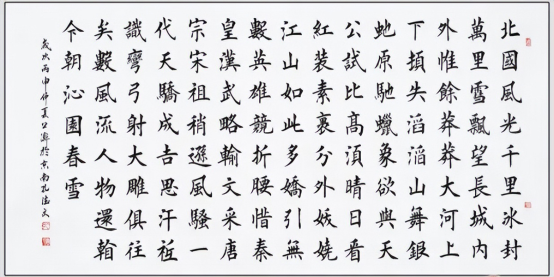 北國風光千里冰封
萬里雪飄望長城內
外惟餘莽莽大河上
下頓失滔滔山舞銀
虵原馳蠟象欲與天
公試比高須晴日看
紅裝素裹分外妖嬈
江山如此多嬌引無
數英雄競折腰惜秦
皇漢武略輸文采唐
宗宋祖稍遜風騷一
代天驕成吉思汗祗
識彎弓射大雕俱往
矣數風流人物還𦒋
今朝沁園春雪
歲次丙申仲夏於京南孔德文